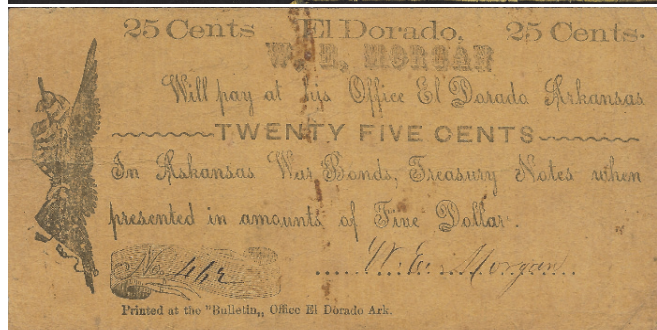 25 Cents El Dorado, 25 Cents.
W. E. MORGAN
Will pay at hjs Office El Dorada Arkansas
TWENTY FIVE CENTS
In Askansas War Bonds, Treasury Notes when
presented in amaunts of Five Dollar.
No. 462 W. E. Morgan
Printed at the "Bulletin,, Office El Dorado Ark.